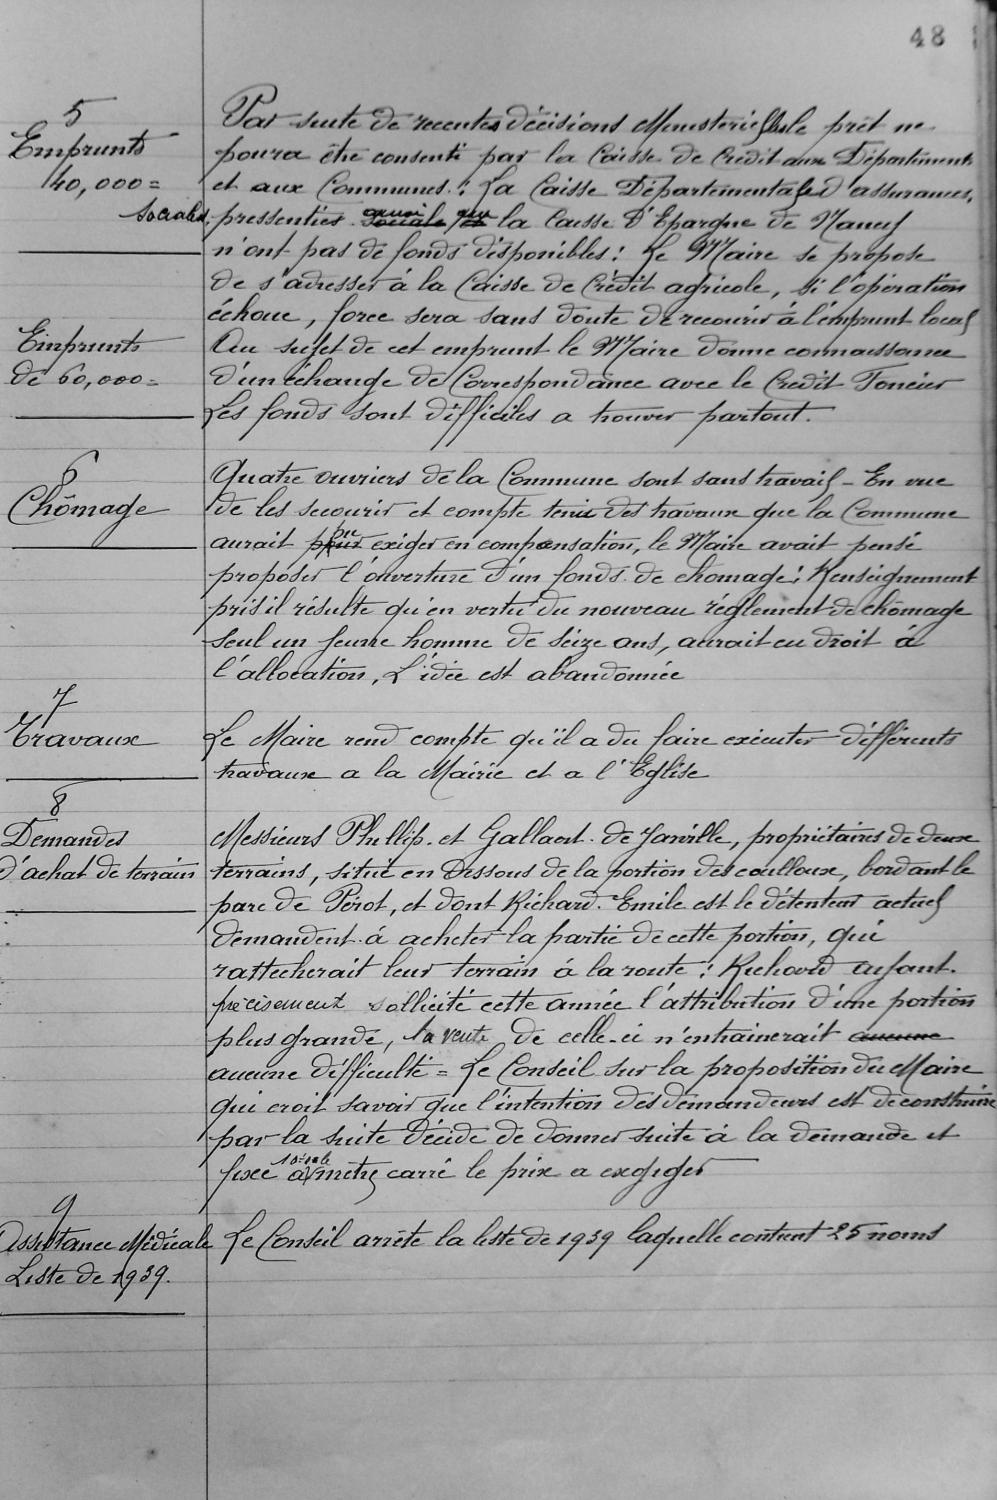 48
5
Emprunts
40,000=
Par suite de recentes décisions Ministerielles le prêt ne
poura être consenti par la Caisse de Crédit aux Départements
et aux Communes. : La Caisse Départementale d'assurances,
Sociales, pressenties ainsi que la Caisse d'Epargne de Nancy
n'ont pas de fonds disponibles : Le Maire se propose
de s'adresser à la Caisse de Crédit agricole, si l'opération
échoue, force sera sans doute de recourir à l'emprunt local
Emprunts
de 60,000=
Au sujet de cet emprunt le Maire donne connaissance
d'un échange de Correspondance avec le Credit Foncier
Les fonds sont difficiles a trouver partout.
6
Chômage
Quatre ouvriers de la Commune sont sans travail - En vue
de les secourir et compte tenu des travaux que la Commune
aurait pu exiger en compensation, le Maire avait pensé
proposer l'ouverture d'un fonds de chomage : Renseignement
pris il résulte qu'en vertu du nouveau réglement de chômage
seul un jeune homme de seize ans, aurait eu droit à
l'allocation, L'idée est abandonnée
7
Travaux
Le Maire rend compte qu'il a du faire exécuter différents
travaux a la Mairie et a l'Eglise
8
Demandes
d'achat de terrain
Messieurs Phillip. et de Jarville, propriétaires de deux
terrains, situé en dessous de la portion des coulloux, bordant le
parc de Pérot, et dont Richard. Emile est le détenteur actuel
demandent à acheter la partie de cette portion, qui
rattecherait leur terrain à la route : Richard ayant.
précisement sollicité cette année l'attribution d'une portion
plus grande, la vente de celle-ci n'entrainerait aucune
aucune difficulté = Le Conseil sur la proposition du Maire
qui croit savoir que l'intention des demandeurs est de construire
par la suite décide de donner suite à la demande et
fixe à le metre carré le prix a exgiger
9
Assistance Médicale
Liste de 1939.
Le Conseil arrête la liste de 1939 laquelle contient 25 noms